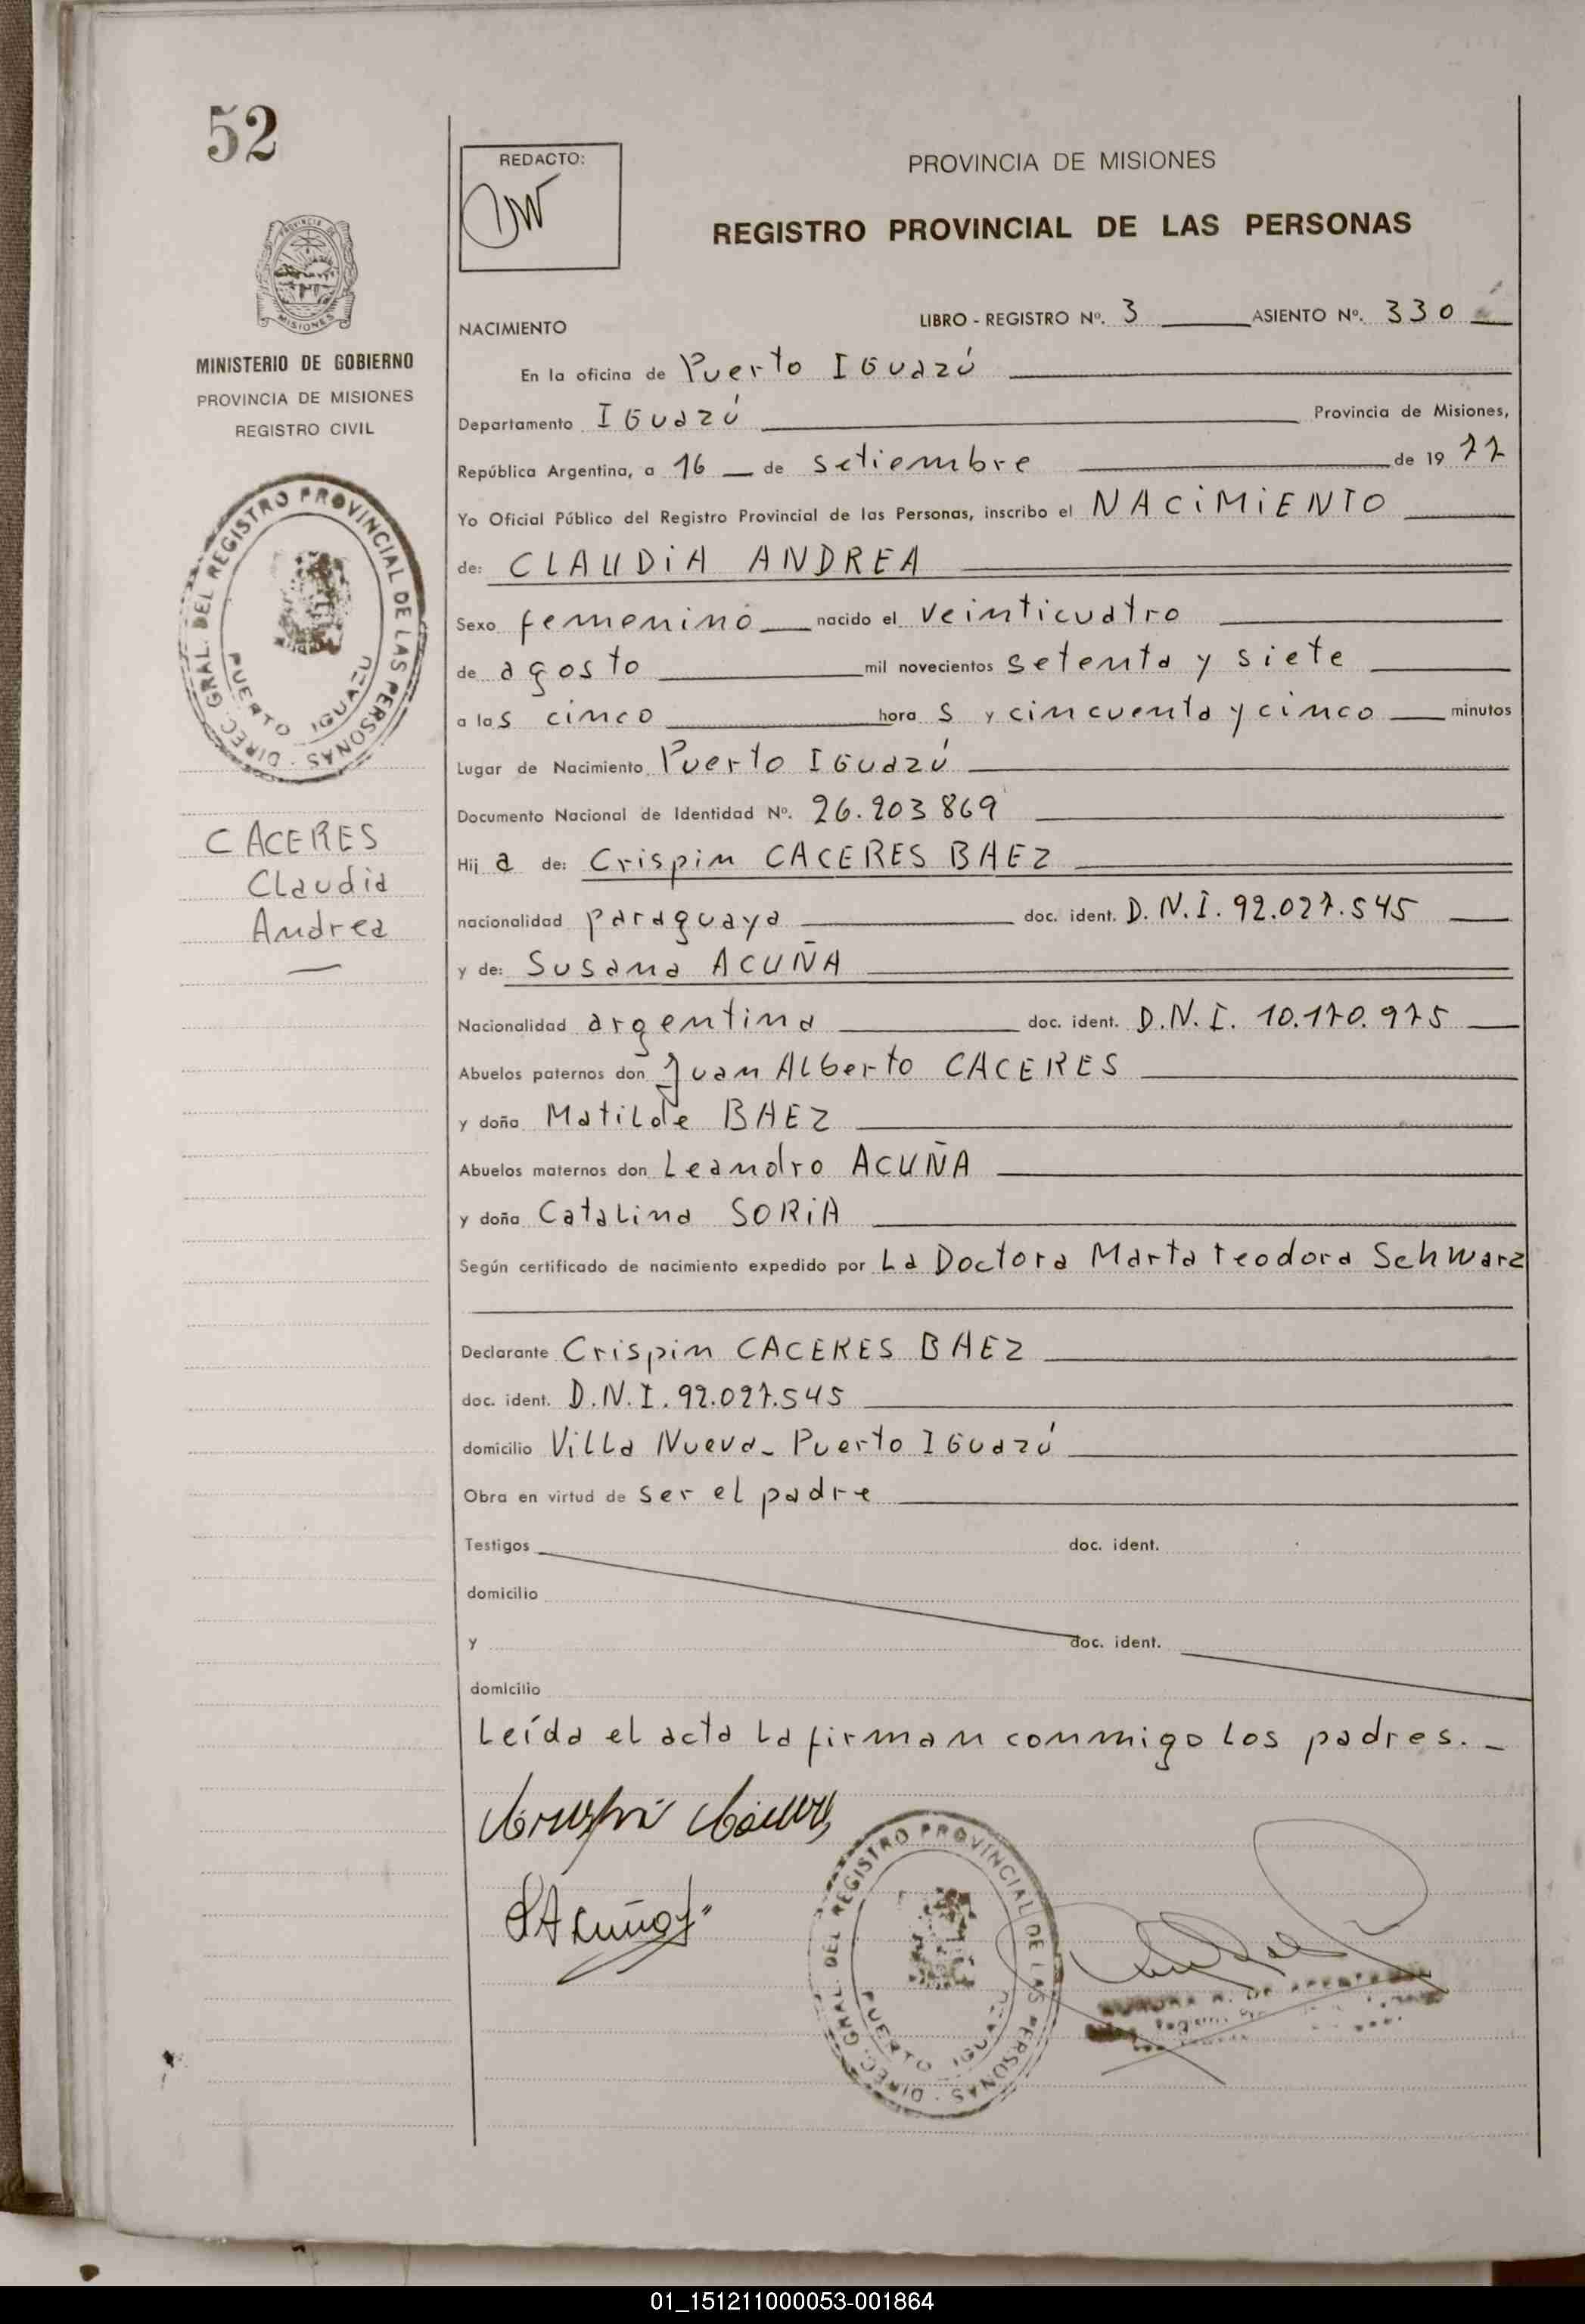 52
REDACTO:
PROVINCIA DE MISIONES
REGISTRO PROVINCIAL DE LAS PERSONAS
MISIONES
NACIMIENTO
LIBRO - REGISTRO Nº. 3 ASIENTO Nº. 330
MINISTERIO DE GOBIERNO
PROVINCIA DE MISIONES
REGISTRO CIVIL
DIREC. GRAL. DEL REGISTRO PROVINCIAL DE LAS PERSONAS
PUERTO IGUAZU
CACERES
Claudia
Andrea
En la oficina de Puerto IGuazú
Departamento IGuazú Provincia de Misiones,
República Argentina, a 16 de setiembre de 19 77
Yo Oficial Público del Registro Provincial de las Personas, inscribo el NACiMiENTO
de: CLAUDiA ANDREA
Sexo femenino nacido el veinticuatro
de agosto mil novecientos setenta y siete
a las cinco horas y cincuenta y cinco minutos
Lugar de Nacimiento Puerto IGuazú
Documento Nacional de Identidad Nº. 26.203869
Hija de: Crispin CACERES BAEZ
nacionalidad paraguaya doc. ident. D.N.I. 92.027.545
y de: Susana ACUÑA
Nacionalidad argentina doc. ident. D.N.I. 10.170.975
Abuelos paternos don Juan Alberto CACERES
y doña Matilde BAEZ
Abuelos maternos don Leandro ACUÑA
y doña Catalina SORiA
Según certificado de nacimiento expedido por La Doctora Marta teodora Schwarz
Declarante Crispin CACERES BAEZ
doc. ident. D.N.I. 92.027.545
domicilio Villa Nueva - Puerto IGuazú
Obra en virtud de ser el padre
Testigos doc. ident.
domicilio
y doc. ident.
domicilio
Leída el acta la firman conmigo los padres. -
DIREC. GRAL. DEL REGISTRO PROVINCIAL DE LAS PERSONAS
PUERTO IGUAZU
01_151211000053-001864